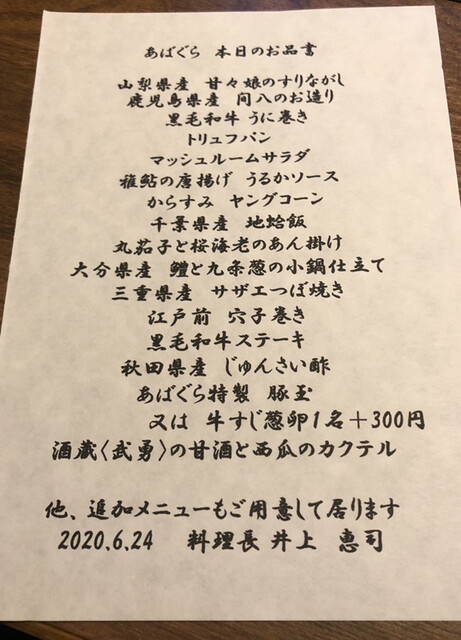 あばぐら 本日のお品書
山梨県産 甘々娘のすりながし
鹿児島県産 間八のお造り
黒毛和牛 うに巻き
トリュフパン
マッシュルームサラダ
稚鮎の唐揚げ うるかソース
からすみ ヤングコーン
千葉県産 地蛤飯
丸茄子と桜海老のあん掛け
大分県産 鱧と九条葱の小鍋仕立て
三重県産 サザエつぼ焼き
江戸前 穴子巻き
黒毛和牛ステーキ
秋田県産 じゅんさい酢
あばぐら特製 豚玉
又は 牛すじ葱卵1名+300円
酒蔵〈武勇〉の甘酒と西瓜のカクテル
他、追加メニューもご用意して居ります
2020.6.24 料理長 井上 恵司